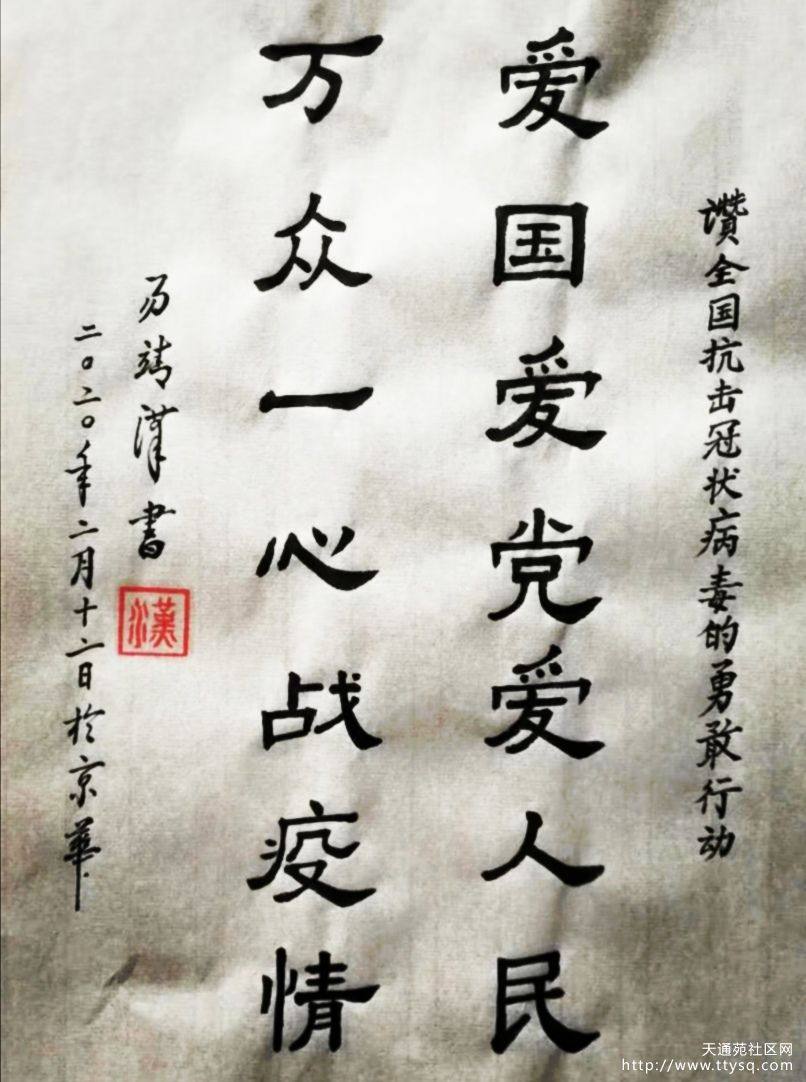 讚全国抗击冠状病毒的勇敢行动
爱国爱党爱人民
万众一心战疫情
易靖漢書
漢
二〇二〇年二月十二日於京華
天通苑社区网
http://www.ttysq.com